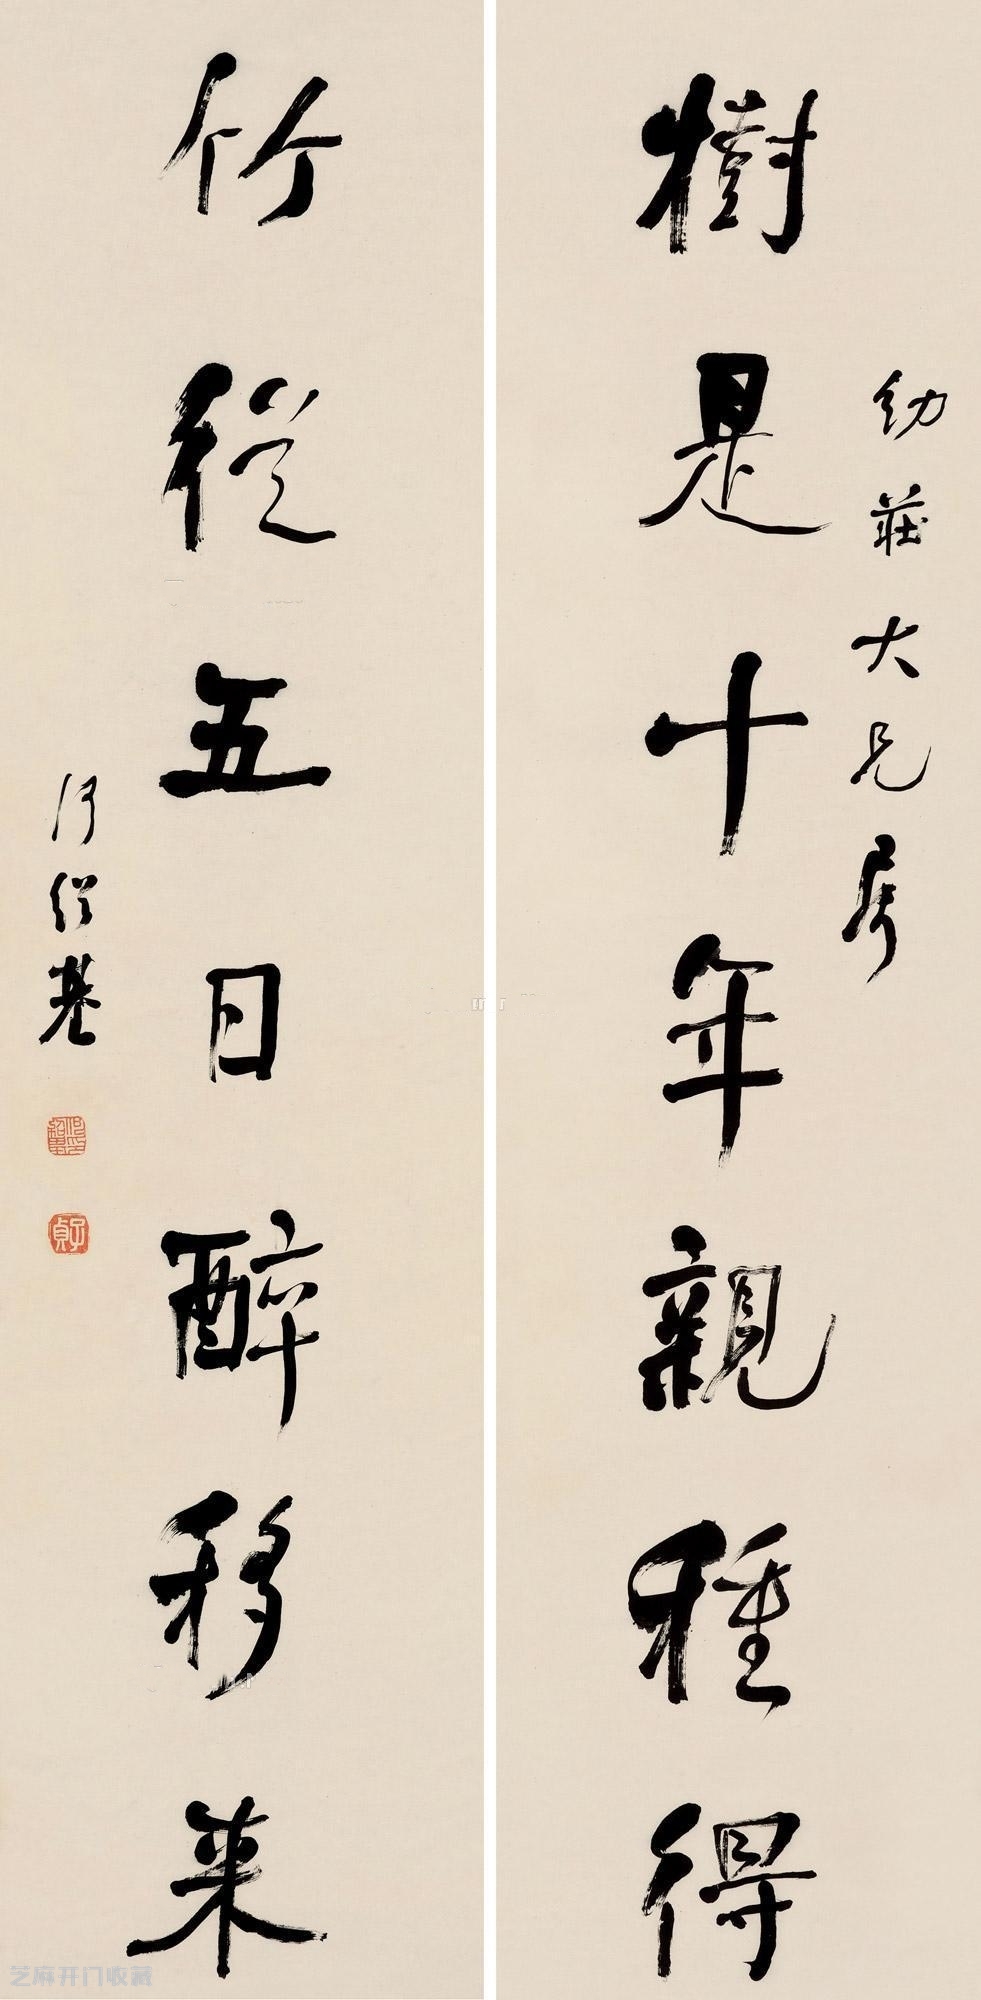 幼莊大兄屬
樹是十年親種得
竹從五日醉移來
何紹基
子貞
芝麻开门收藏